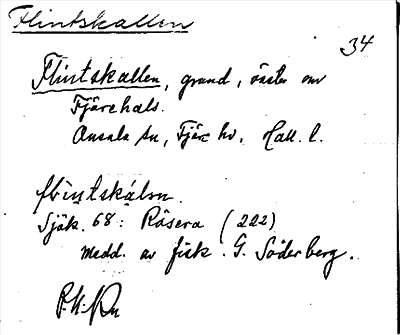 Flintskallen
34
Flintskallen, grund, väster om
Fjärehals.
Onsala sn, Fjäre hd, Hall. l.
flintskálsn.
Sjök. 68: Råsera (222)
medd. av fisk. G. Söderberg.